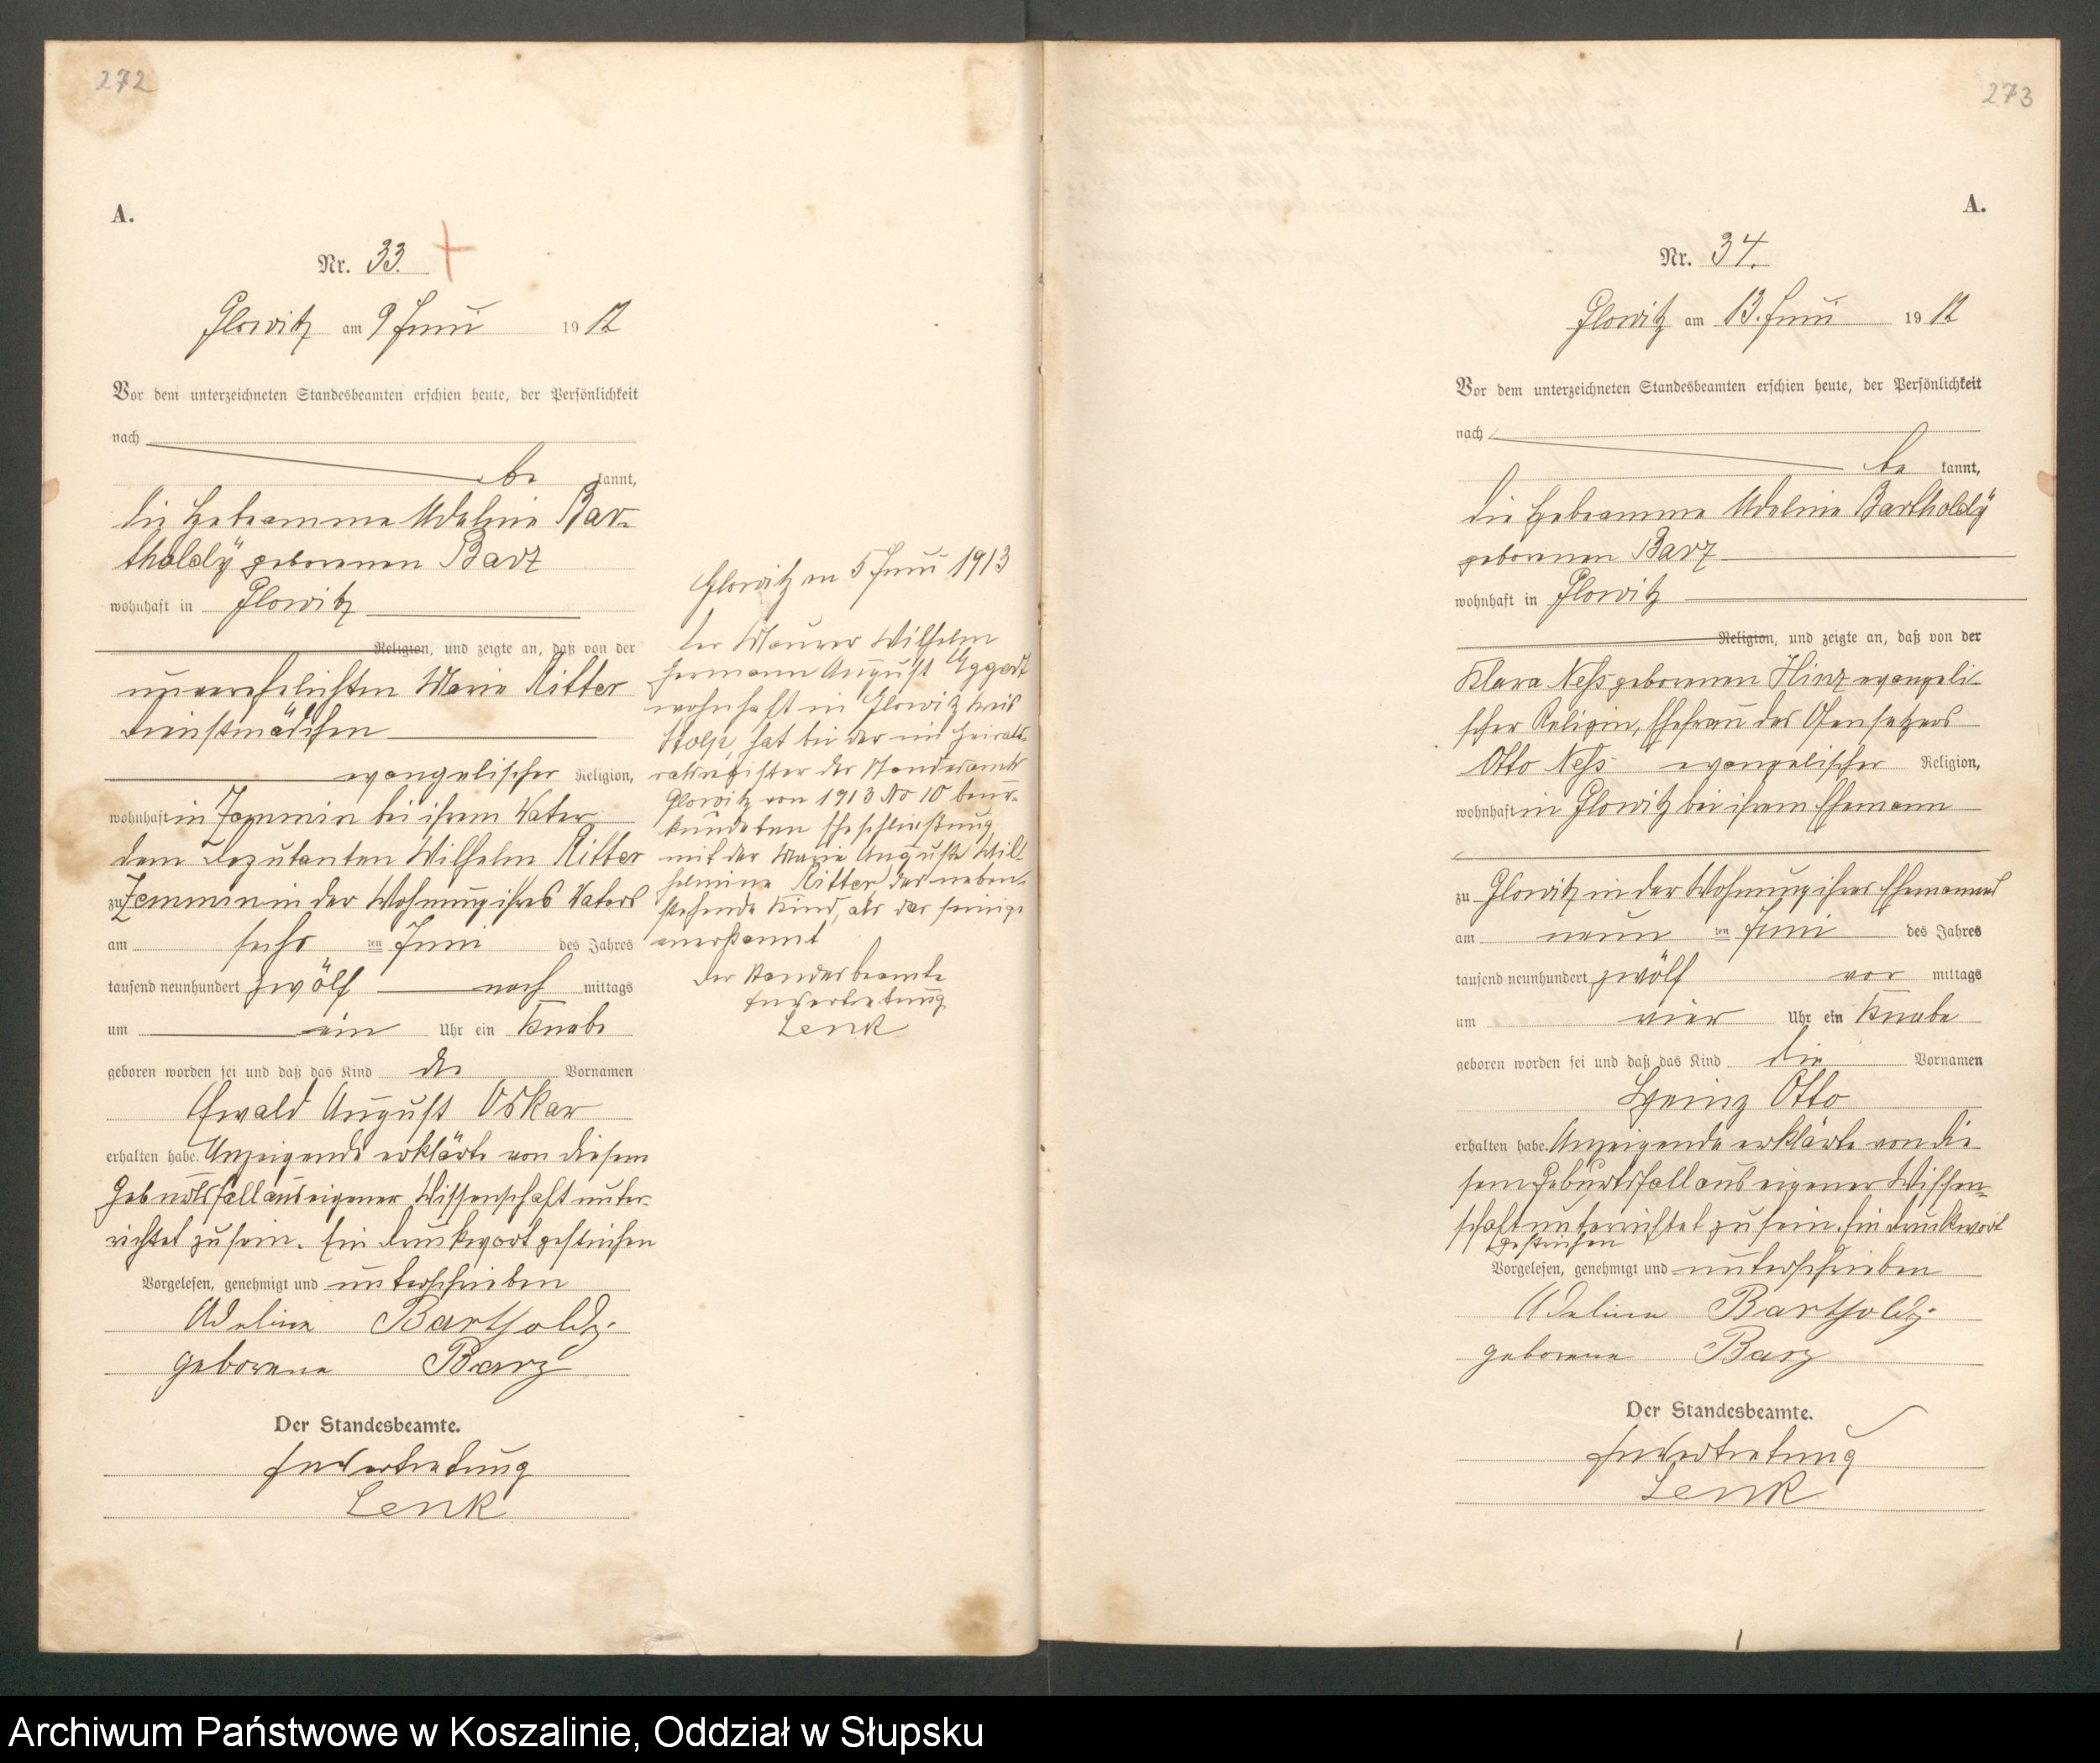 272
A.
Nr. 33.
Glowitz am 9 Juni 1912
Vor dem unterzeichneten Standesbeamten erschien heute, der Persönlichkeit
nach
be kannt,
die Hebeamme Adeline Bar-
tholdÿ geborenen Barz
wohnhaft in Glowitz
Religion, und zeigte an, daß von der
unverehelichten Marie Ritter
Dienstmädchen
evangelischer Religion,
wohnhaft in Zemmin bei ihrem Vater
dem Deputanten Wilhelm Ritter
zu Zemmin in der Wohnung ihres Vaters
am sechs ten Juni des Jahres
tausend neunhundert zwölf nach mittags
um ein Uhr ein Knabe
geboren worden sei und daß das Kind die Vornamen
Ewald August Oskar
erhalten habe. Anzeigende erklärte von diesem
Geburtsfall aus eigener Wissenschaft unter-
richtet zu sein. Ein Druckwort gestrichen
Vorgelesen, genehmigt und unterschrieben
Adeline Bartholdy
geborene Barz
Der Standesbeamte.
In Vertretung
Lenk
Glowitz am 5 Juni 1913
Der Maurer Wilhelm
Hermann August Eggert
wohnhaft in Glowitz Kreis
Stolp, hat bei der im Heirats-
register des Standesamts
Glowitz von 1913 No 10 beur-
kundeten Eheschließung
mit der Marie Auguste Wil-
helmine Ritter, das neben-
stehende Kind, als das seinige
anerkannt
Der Standesbeamte
In Vertretung
Lenk
273
A.
Nr. 34.
Glowitz am 13. Juni 1912
Vor dem unterzeichneten Standesbeamten erschien heute, der Persönlichkeit
nach
be kannt,
die Hebeamme Adeline Bartholdÿ
geborenen Barz
wohnhaft in Glowitz
Religion, und zeigte an, daß von der
Klara Neß geborenen Hinz evangeli-
scher Religion, Ehefrau des Ofensetzers
Otto Neß evangelischer Religion,
wohnhaft in Glowitz bei ihrem Ehemann
zu Glowitz in der Wohnung ihres Ehemannes
am neun ten Juni des Jahres
tausend neunhundert zwölf vor mittags
um vier Uhr ein Knabe
geboren worden sei und daß das Kind die Vornamen
Heinz Otto
erhalten habe. Anzeigende erklärte von die
sem Geburtsfall aus eigener Wissen-
schaft unterrichtet zu sein. Ein Druckwort
gestrichen
Vorgelesen, genehmigt und unterschrieben
Adeline Bartholdy
geborene Barz
Der Standesbeamte.
In Vertretung
Lenk
Archiwum Państwowe w Koszalinie, Oddział w Słupsku